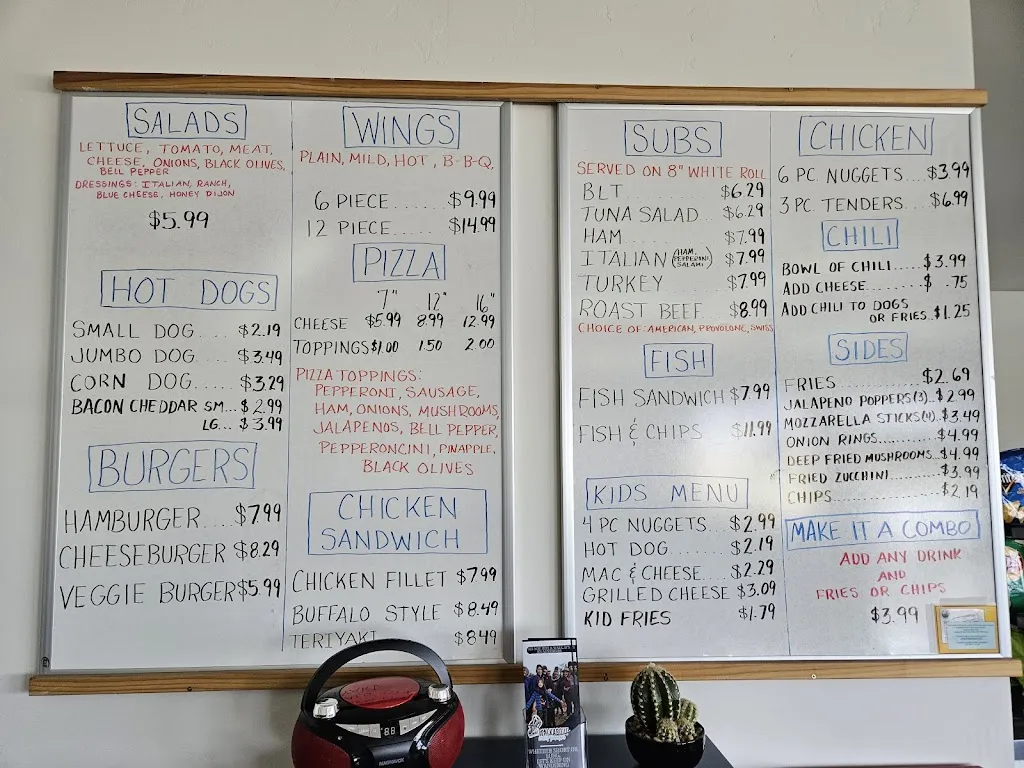 SALADS
LETTUCE, TOMATO, MEAT,
CHEESE, ONIONS, BLACK OLIVES,
BELL PEPPER
DRESSINGS: ITALIAN, RANCH,
BLUE CHEESE, HONEY DIJON
$5.99
HOT DOGS
SMALL DOG.... $2.19
JUMBO DOG.... $3.49
CORN DOG..... $3.29
BACON CHEDDAR SM... $2.99
LG... $3.99
BURGERS
HAMBURGER.... $7.99
CHEESEBURGER $8.29
VEGGIE BURGER $5.99
WINGS
PLAIN, MILD, HOT, B-B-Q,
6 PIECE...... $9.99
12 PIECE..... $14.99
PIZZA
7" 12" 16"
CHEESE $5.99 8.99 12.99
TOPPINGS $1.00 1.50 2.00
PIZZA TOPPINGS:
PEPPERONI, SAUSAGE,
HAM, ONIONS, MUSHROOMS,
JALAPENOS, BELL PEPPER,
PEPPERONCINI, PINAPPLE,
BLACK OLIVES
CHICKEN
SANDWICH
CHICKEN FILLET $7.99
BUFFALO STYLE $8.49
TERIYAKI $8.49
SUBS
SERVED ON 8" WHITE ROLL
BLT........... $6.29
TUNA SALAD... $6.29
HAM........... $7.99
ITALIAN (HAM, PEPPERONI, SALAMI) $7.99
TURKEY $7.99
ROAST BEEF.. $8.99
CHOICE OF: AMERICAN, PROVOLONE, SWISS
FISH
FISH SANDWICH $7.99
FISH & CHIPS $11.99
KIDS MENU
4 PC NUGGETS.. $2.99
HOT DOG....... $2.19
MAC & CHEESE.... $2.29
GRILLED CHEESE $3.09
KID FRIES $1.79
CHICKEN
6 PC. NUGGETS... $3.99
3 PC. TENDERS... $6.99
CHILI
BOWL OF CHILI.....$3.99
ADD CHEESE........$ .75
ADD CHILI TO DOGS
OR FRIES..$1.25
SIDES
FRIES...........$2.69
JALAPENO POPPERS(3)..$2.99
MOZZARELLA STICKS(4)..$3.49
ONION RINGS.......$4.99
DEEP FRIED MUSHROOMS..$4.99
FRIED ZUCCHINI.......$3.99
CHIPS...............$2.19
MAKE IT A COMBO
ADD ANY DRINK
AND
FRIES OR CHIPS
$3.99
MAGNAVOX